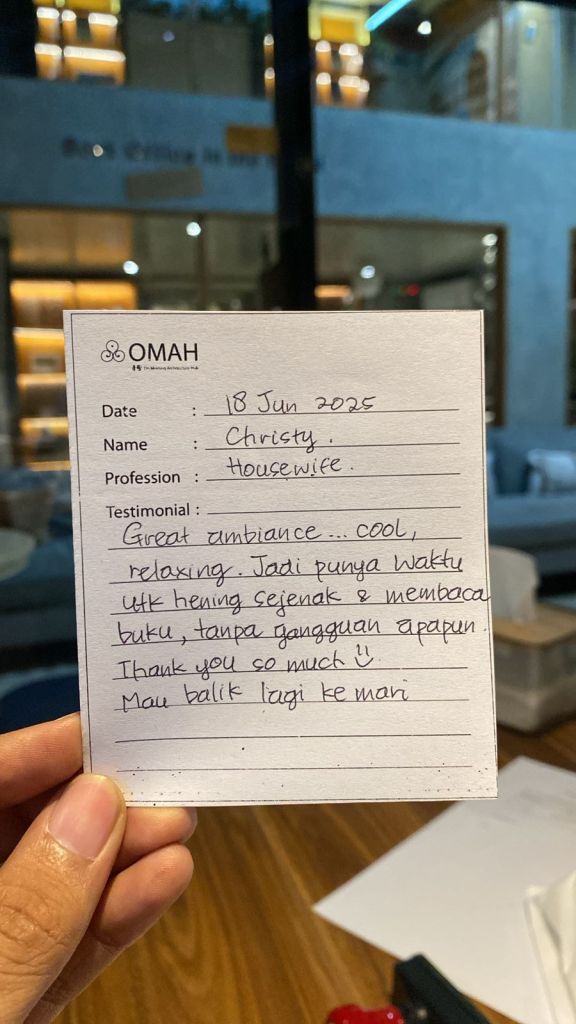 OMAH
Date : 18 Jun 2025
Name : Christy.
Profession : Housewife.
Testimonial :
Great ambiance... cool,
relaxing. Jadi punya waktu
utk hening sejenak & membaca
buku, tanpa gangguan apapun.
Thank you so much
Mau balik lagi ke mari